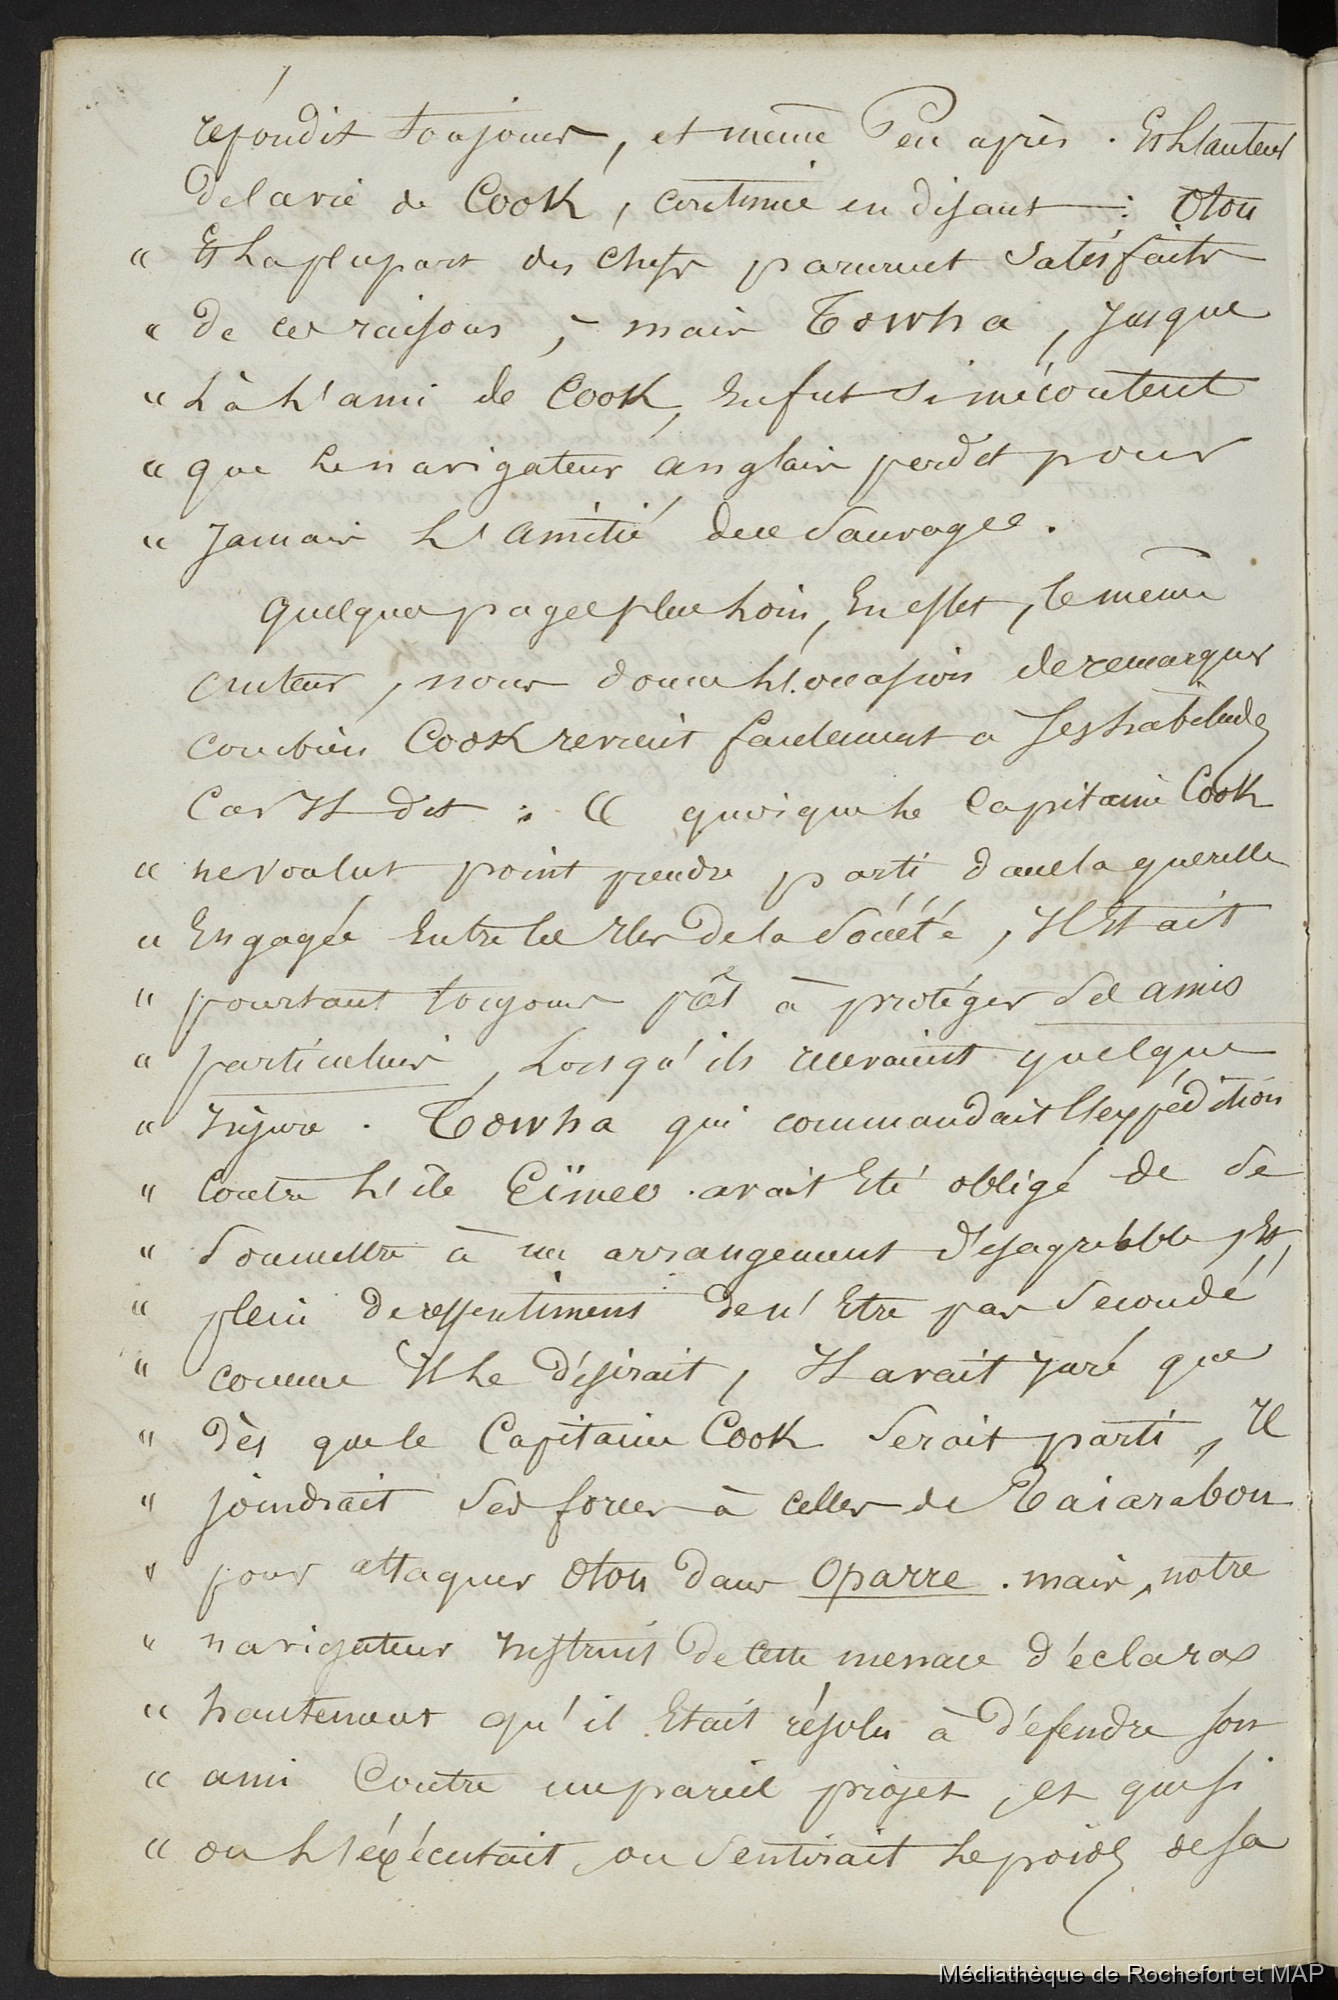 répondit toujours, et même Peu après. Et L'auteur
de la vie de Cook, continue en disant : Otou
" Et La plupart des chefs parurent Satisfaits
" de ces raisons, mais Towha, Jusque
" Là L'ami de Cook, En fut Si mécontent
" que Le navigateur anglais perdit pour
" Jamais L'amitié des Sauvages.
quelques pages plus Loin, En effet, le même
auteur, nous donne L'occasion de remarquer
combien Cook revenait facilement à Ses habitudes
Car Il dit : " quoique Le Capitaine Cook
" ne voulut point prendre parti dans la querelle
" Engagée Entre les Iles de la Société, Il Etait
" pourtant toujours prêt à protéger Ses amis
" particuliers, Lorsqu'ils recevaient quelque
" Injure. Towha qui commandait L'expédition
" Contre L'île Eïmeo avait Eté obligé de Se
" Soumettre à un arrangement désagréable, Et,
" plein de ressentiment de n'Etre pas Secondé
" comme Il Le désirait, Il avait Juré que
" dès que le Capitaine Cook Serait parti, Il
" joindrait Ses forces à celles de Taiarabou
" pour attaquer Otou dans Oparre. mais, notre
" navigateur Instruit de cette menace déclara
" hautement qu'il Etait résolu à défendre son
" ami Contre un pareil projet, et que si
" on L'éxécutait, on Sentirait Le poids de sa
Médiathèque de Rochefort et MAP